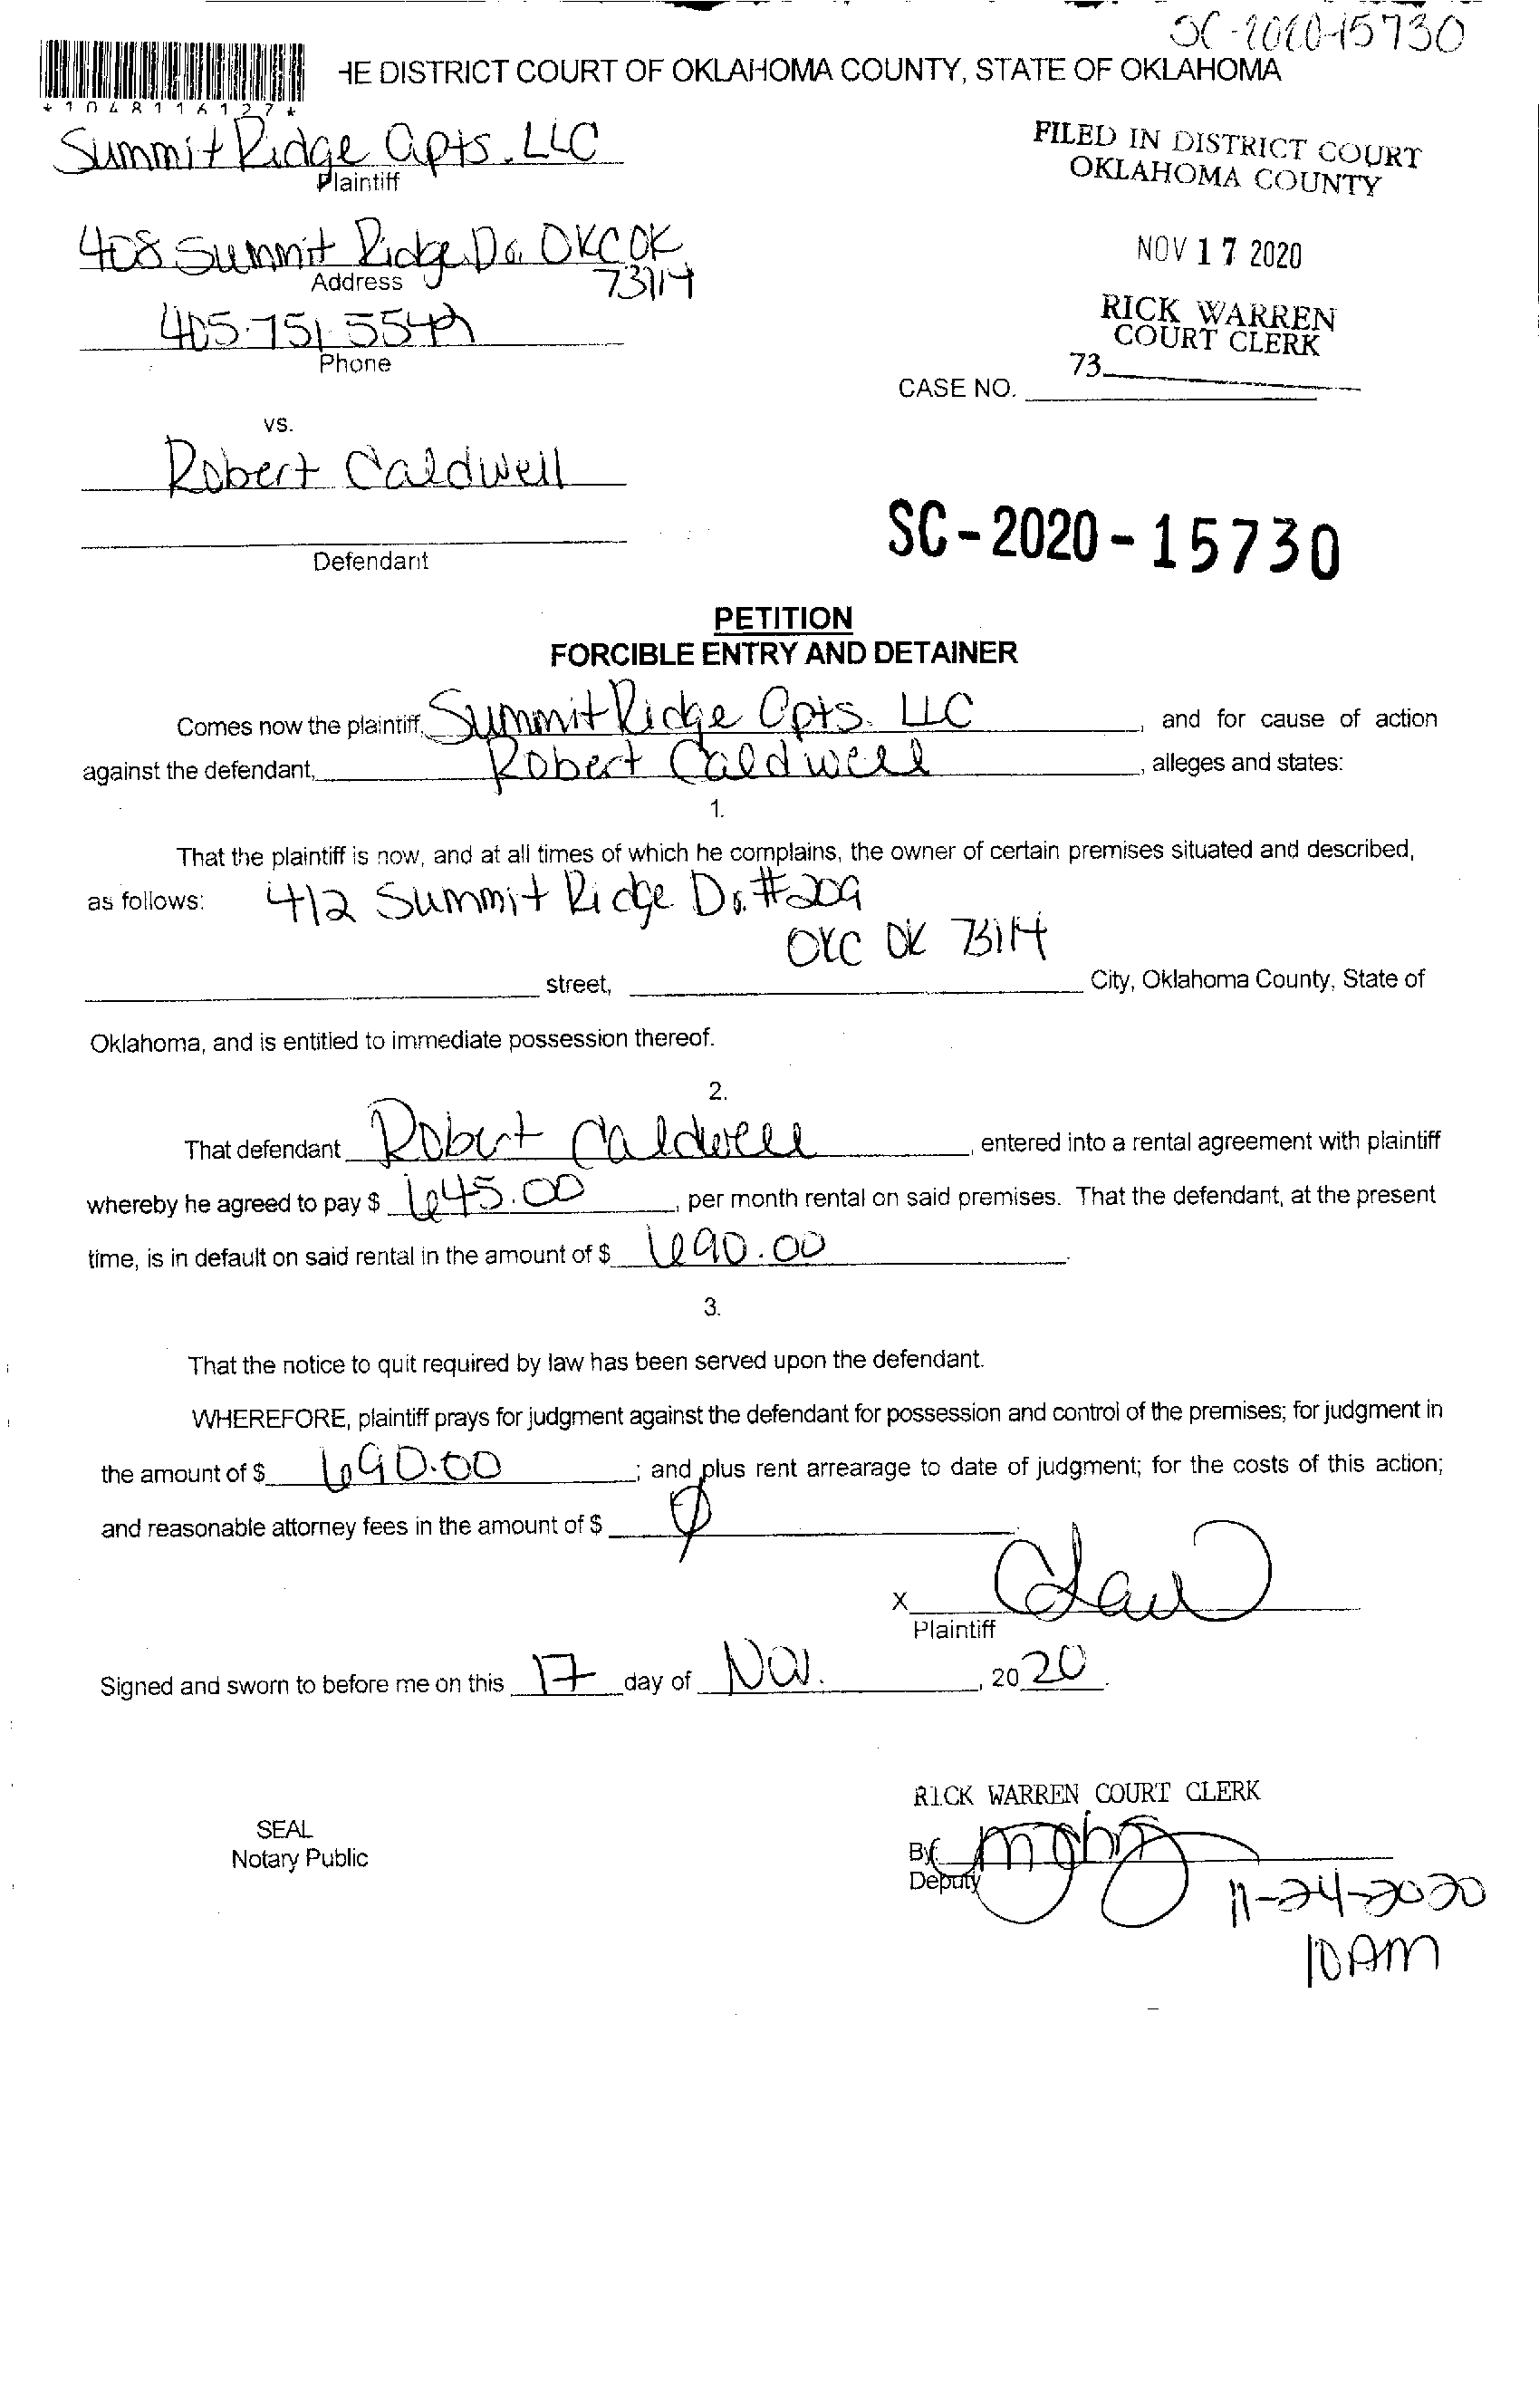 SC-2020-15730
HE DISTRICT COURT OF OKLAHOMA COUNTY, STATE OF OKLAHOMA
*1048116127*
Summit Ridge Apts. LLC
Plaintiff
FILED IN DISTRICT COURT
OKLAHOMA COUNTY
408 Summit Ridge Dr. OKC OK
73114
Address
NOV 17 2020
405-751-5542
Phone
RICK WARREN
COURT CLERK
73
CASE NO.
vs.
Robert Caldwell
Defendant
SC-2020-15730
PETITION
FORCIBLE ENTRY AND DETAINER
Comes now the plaintiff, Summit Ridge Apts. LLC, and for cause of action
against the defendant, Robert Caldwell, alleges and states:
1.
That the plaintiff is now, and at all times of which he complains, the owner of certain premises situated and described,
as follows: 412 Summit Ridge Dr. #209
OKC OK 73114
street, City, Oklahoma County, State of
Oklahoma, and is entitled to immediate possession thereof.
2.
That defendant Robert Caldwell, entered into a rental agreement with plaintiff
whereby he agreed to pay $ 645.00, per month rental on said premises. That the defendant, at the present
time, is in default on said rental in the amount of $ 690.00.
3.
That the notice to quit required by law has been served upon the defendant.
WHEREFORE, plaintiff prays for judgment against the defendant for possession and control of the premises; for judgment in
the amount of $ 690.00; and plus rent arrearage to date of judgment; for the costs of this action;
and reasonable attorney fees in the amount of $ ∅
X
Plaintiff
Signed and sworn to before me on this 17 day of Nov., 2020.
RICK WARREN COURT CLERK
SEAL
Notary Public
By:
Deputy
11-24-2020
10AM